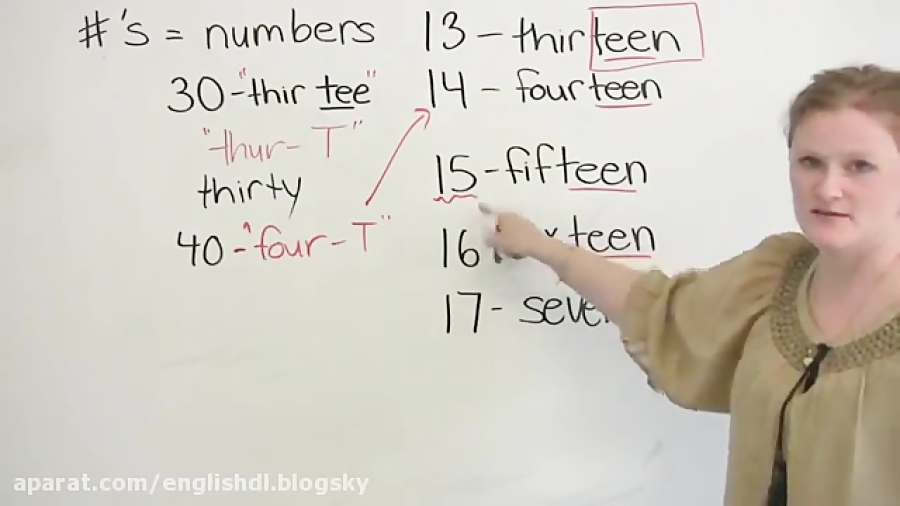 #'s = numbers
30 - "thir tee"
"thur- T"
thirty
40 - "four - T"
13 - thirteen
14 - fourteen
15 - fifteen
16 teen
17 -
aparat.com/englishdl.blogsky